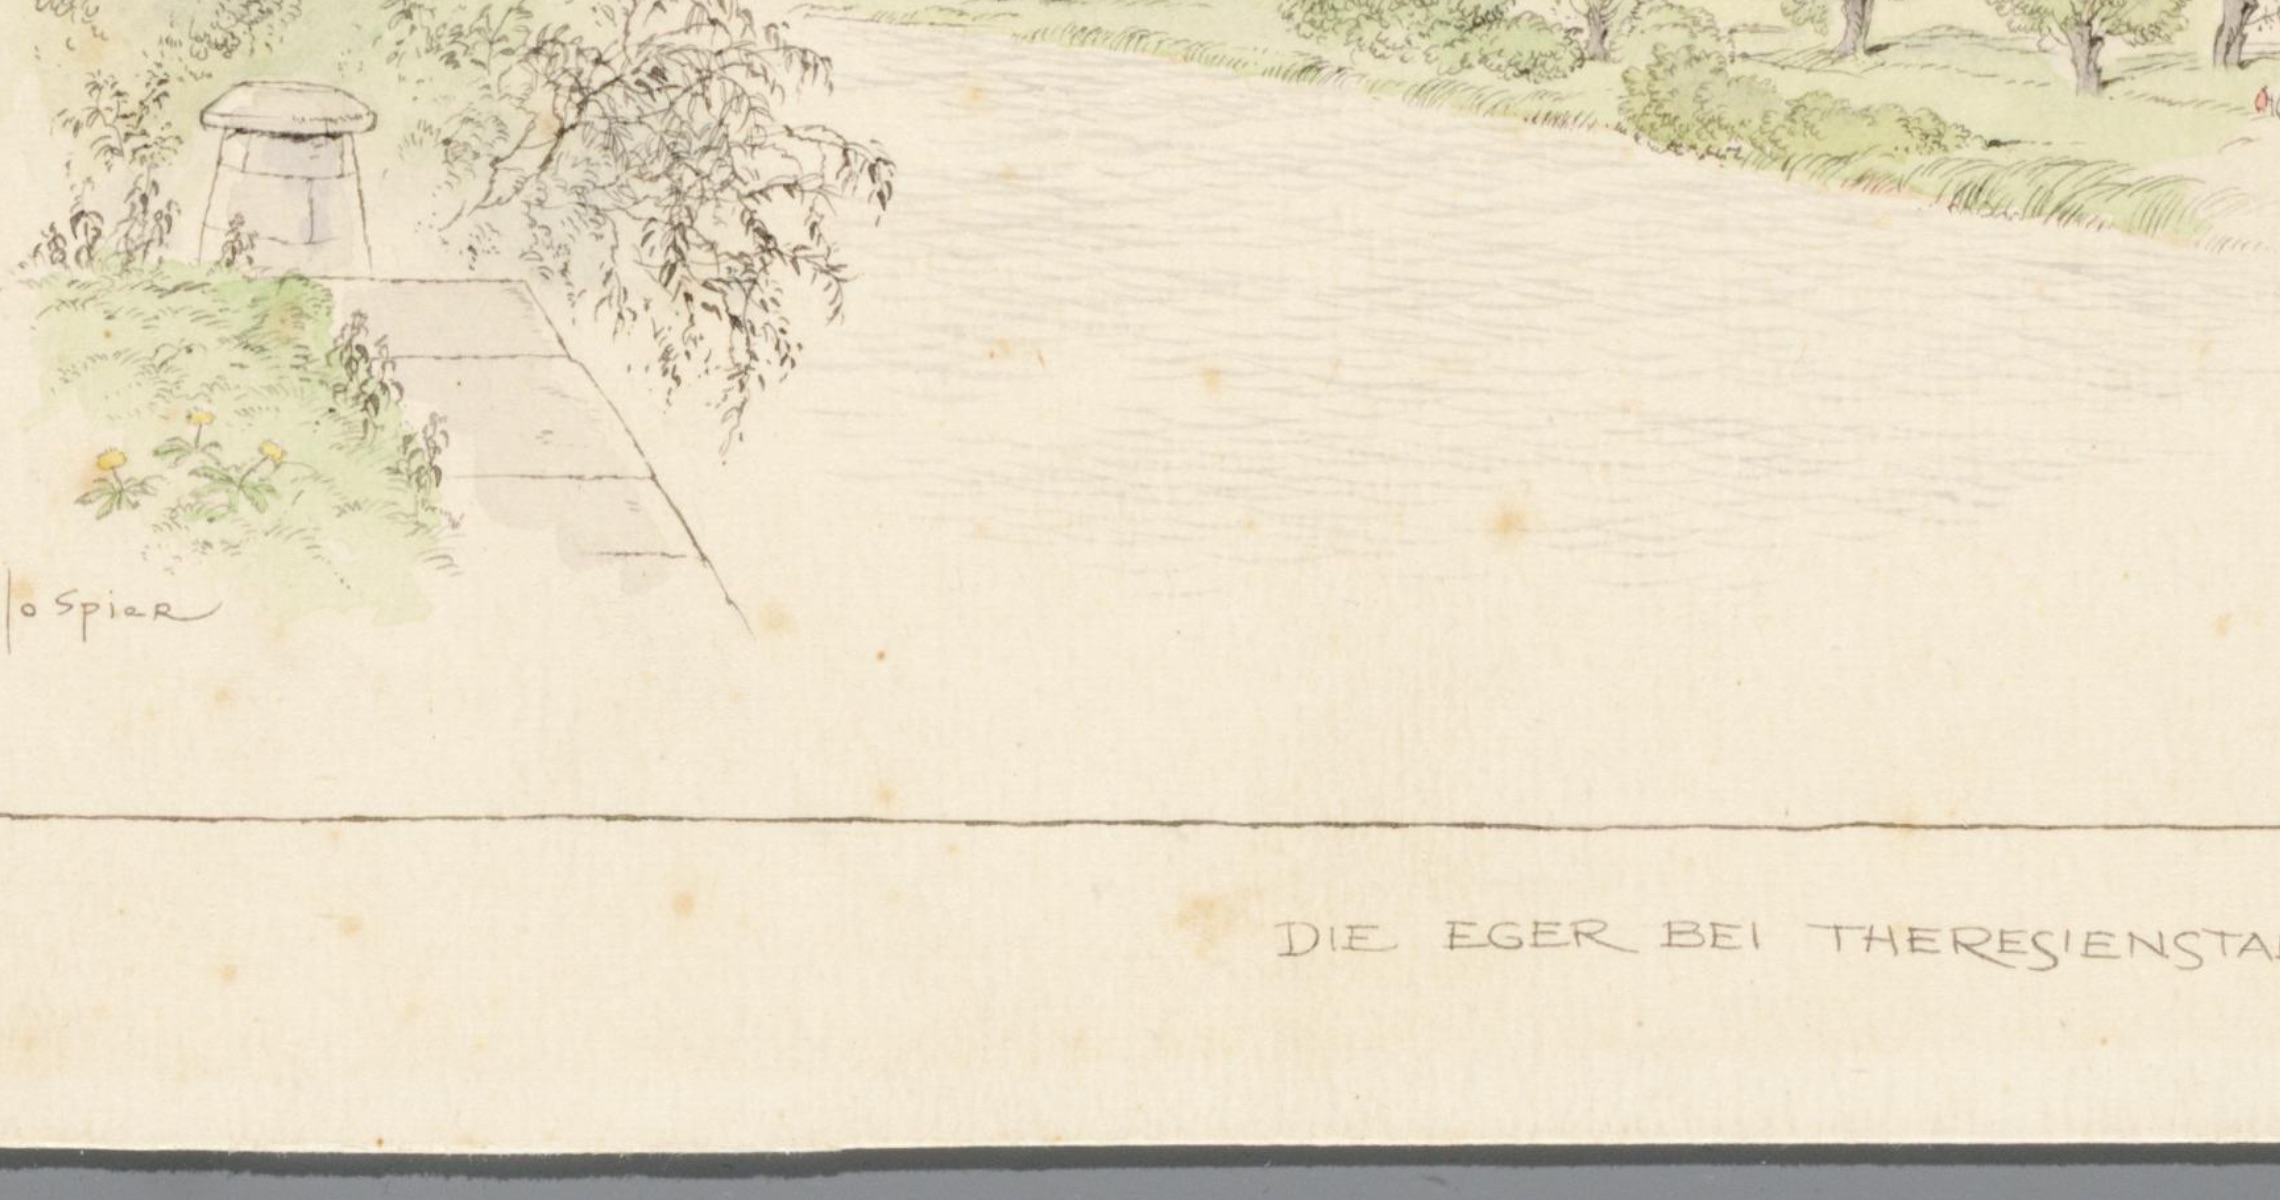 Jo Spier
DIE EGER BEI THERESIENSTA